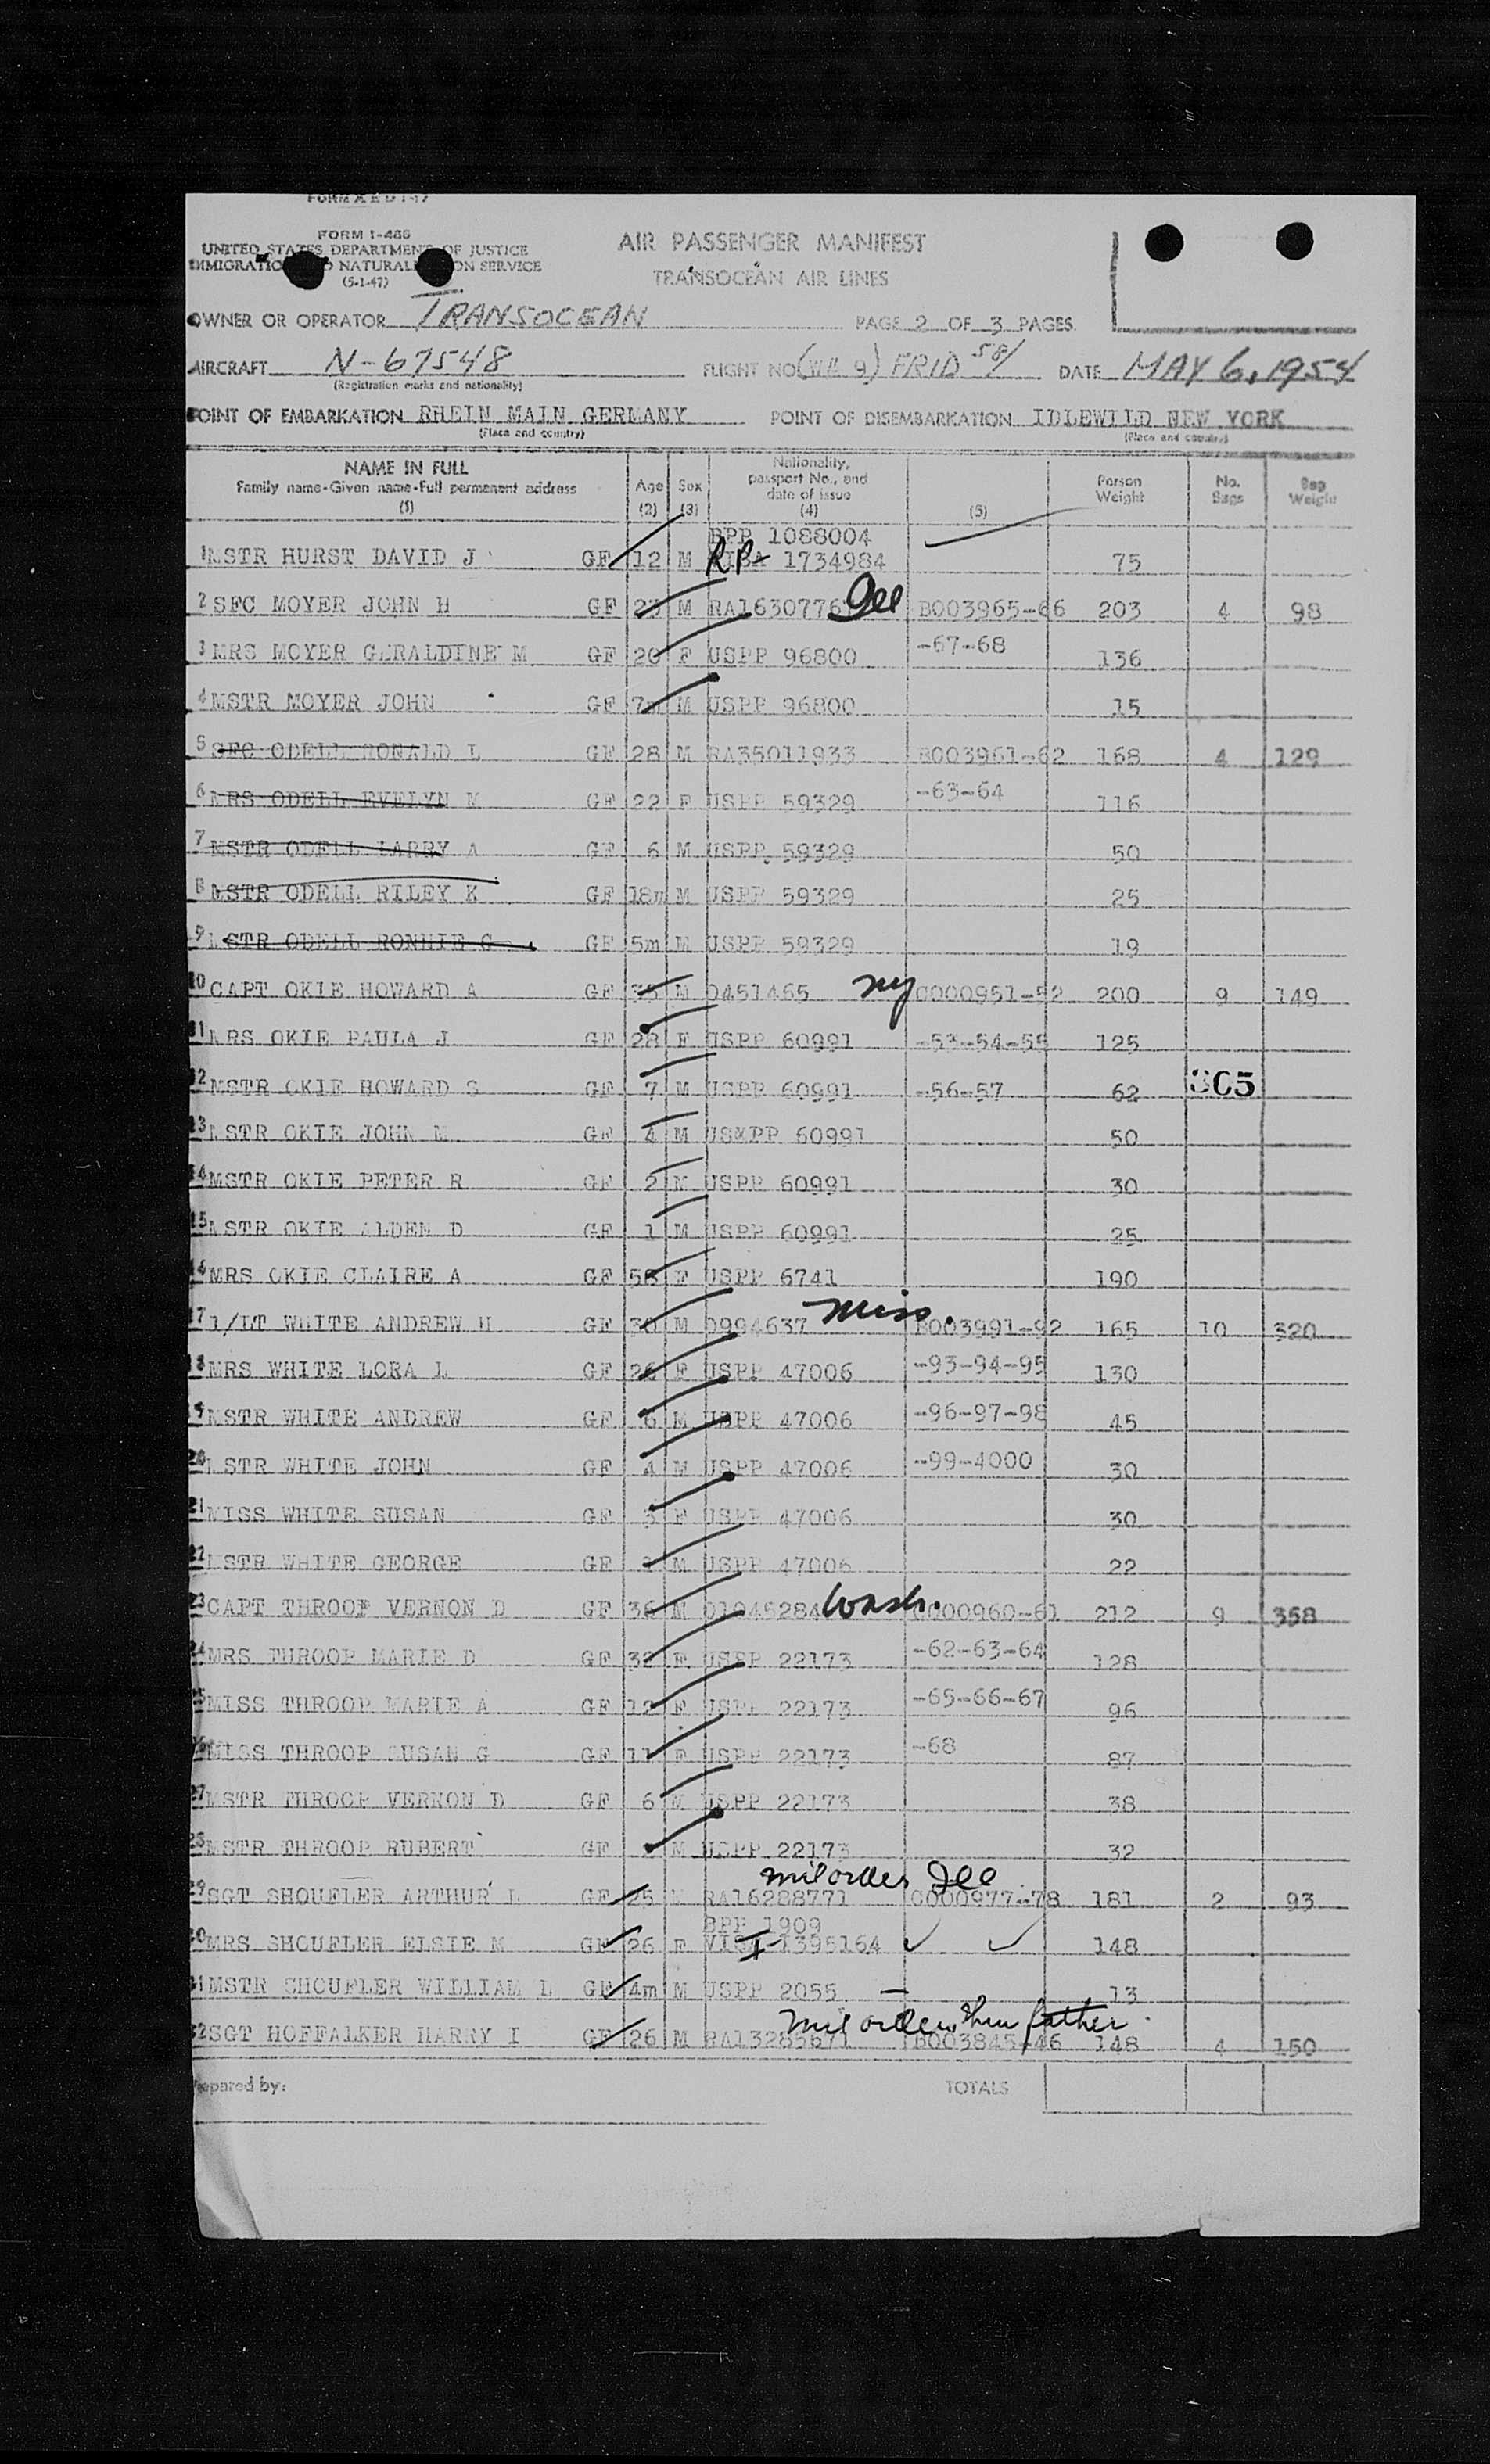 FORM I-466
UNITED STATES DEPARTMENT OF JUSTICE
IMMIGRATION NATURALIZATION SERVICE
(5-1-47)
AIR PASSENGER MANIFEST
TRANSOCEAN AIR LINES
OWNER OR OPERATOR TRANSOCEAN PAGE 2 OF 3 PAGES
AIRCRAFT N-67548 FLIGHT NO FRID 581 DATE MAY 6, 1954
(Registration marks and nationality)
POINT OF EMBARKATION RHEIN MAIN GERMANY POINT OF DISEMBARKATION IDLEWILD NEW YORK
(Place and country) (Place and country)
NAME IN FULL Family name-Given name-Full permanent address (1) Age (2) Sex (3) Nationality, passport No., and date of issue (4) (5) Person Weight No. Bags Bag Weight
BPP 1088004
1 MSTR HURST DAVID J GF 12 M RP VISA 1734984 75
2 SFC MOYER JOHN H GF 23 M B003965-66 203 4 98
3 MRS MOYER GERALDINE M GF 20 F USPP 96800 -67-68 136
4 MSTR MOYER JOHN GF 7m M USPP 96800 15
5 SFC ODELL RONALD L GF 28 M RA35011933 B003961-62 168 4 129
6 MRS ODELL EVELYN M GF 22 F USPP 59329 -63-64 116
7 MSTR ODELL LARRY A GF 6 M USPP 59329 50
8 MSTR ODELL RILEY K GF 18m M USPP 59329 25
9 MSTR ODELL RONNIE G GF 5m M USPP 59329 19
10 CAPT OKIE HOWARD A GF M O451465 ny C000951-52 200 9 149
11 MRS OKIE PAULA J GF 28 F USPP 60991 -53-54-55 125
12 MSTR OKIE HOWARD S GF 7 M USPP 60991 -56-57 62
13 MSTR OKIE JOHN M GF 4 M USXPP 60991 50
14 MSTR OKIE PETER R GF 2 M USPP 60991 30
15 MSTR OKIE ALDEN D GF 1 M USPP 60991 25
16 MRS OKIE CLAIRE A GF F USPP 6741 190
17 1/LT WHITE ANDREW H GF 30 M O994637 Miss. B003991-92 165 10 320
18 MRS WHITE LORA L GF 26 F USPP 47006 -93-94-95 130
19 MSTR WHITE ANDREW GF 6 M USPP 47006 -96-97-98 45
20 MSTR WHITE JOHN GF 4 M USPP 47006 -99-4000 30
21 MISS WHITE SUSAN GF 3 F USPP 47006 30
22 MSTR WHITE GEORGE GF M USPP 47006 22
23 CAPT THROOP VERNON D GF 36 M O1045284 Wash. C000960-61 212 9 358
24 MRS THROOP MARIE D GF 32 F USPP 22173 -62-63-64 128
25 MISS THROOP MARIE A GF 12 F USPP 22173 -65-66-67 96
26 MISS THROOP SUSAN G GF 11 F USPP 22173 -68 87
27 MSTR THROOP VERNON D GF 6 M USPP 22173 38
28 MSTR THROOP RUBERT GF M USPP 22173 32
mil orders Ill
29 SGT SHOUFLER ARTHUR L GF 25 M RA16288771 C000977-78 181 2 93
BPP 1909
30 MRS SHOUFLER ELSIE M GF 26 F VISA 1395164 148
31 MSTR SHOUFLER WILLIAM L GF 4m M USPP 2055 13
mil orders thru father
32 SGT HOFFALKER HARRY I GF 26 M RA13285671 B003845-46 148 4 150
Prepared by: TOTALS